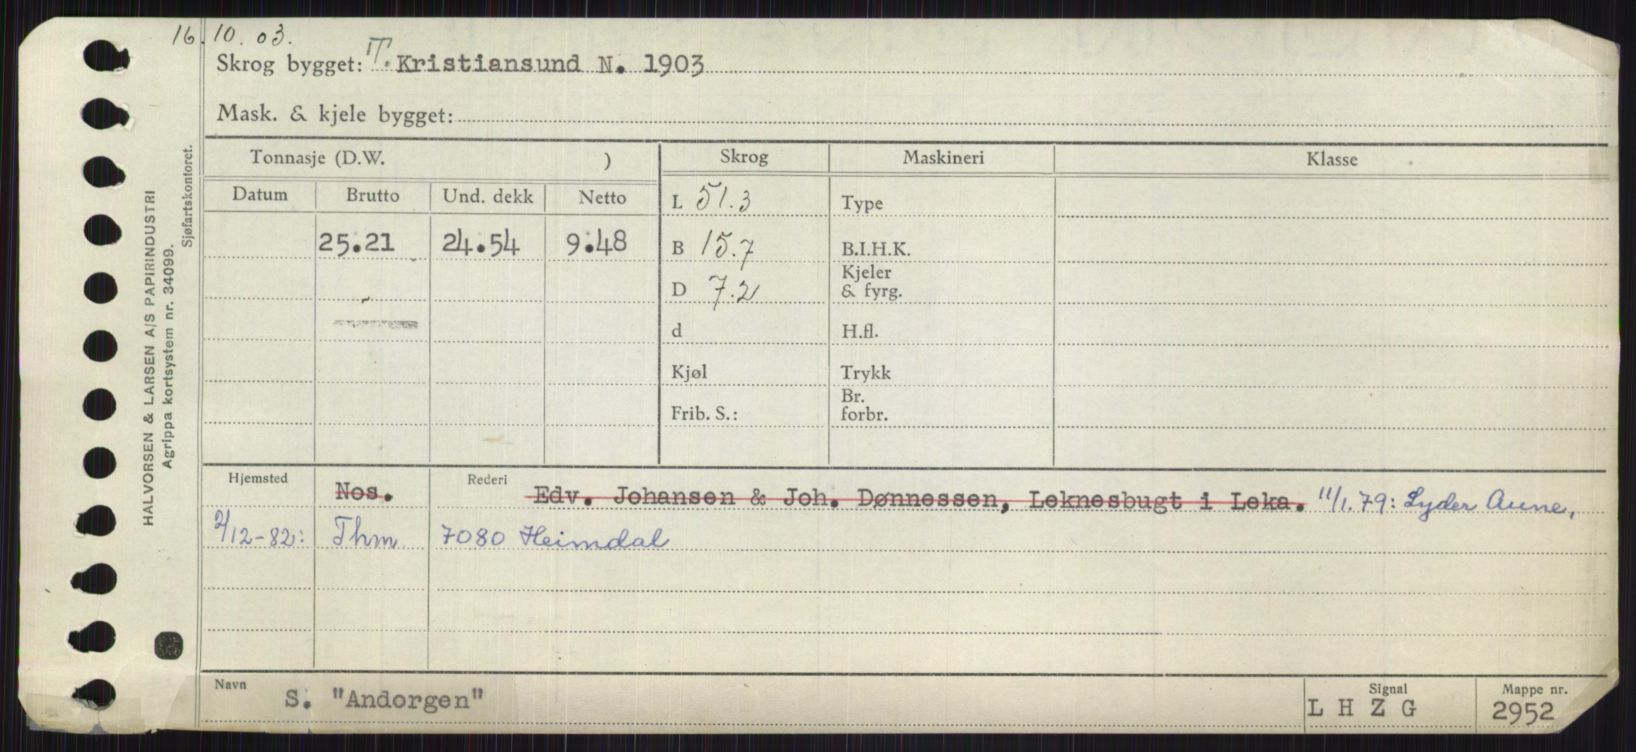 16.10.03.
Skrog bygget: T. Kristiansund N. 1903
Mask. & kjele bygget:
Tonnasje (D.W. ) Skrog Maskineri Klasse
Datum Brutto Und. dekk Netto
L 51.3 Type
25.21 24.54 9.48 B 15.7 B.I.H.K.
Kjeler
D 7.2 & fyrg.
d H.fl.
Kjøl Trykk
Br.
Frib. S.: forbr.
Hjemsted Rederi
Nos. Edv. Johansen & Joh. Dønnessen, Leknesbugt i Leka. 11/1.79: Lyder Aune,
2/12-82: Thm 7080 Heimdal
Navn Signal Mappe nr.
S. "Andorgen" L H Z G 2952
HALVORSEN & LARSEN A/S PAPIRINDUSTRI
Agrippa kortsystem nr. 34099.
Sjøfartskontoret.